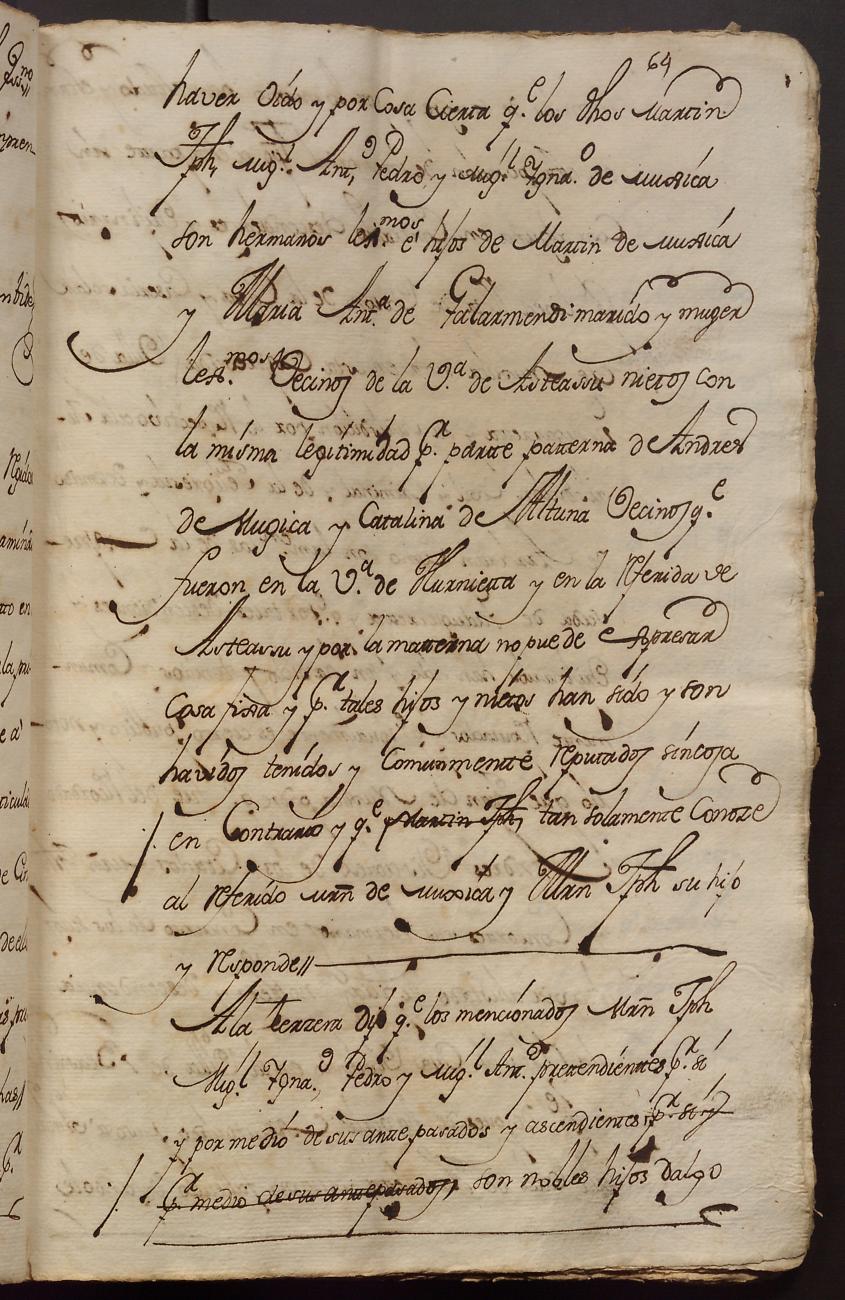 64
haver oido y por Cosa Cierta q.e los dhos Martin
Jph, Mig.l Ant.o Pedro y Mig.l Ygna.o de Muxica
son hermanos lex.mos e hijos de Martin de Muxica
y Maria Ant.a de Galarmendi marido y muger
lex.mos Vecinos de la V.a de Asteassu nietos con
la misma legitimidad p.r partte patterna de Andres
de Mugica y Catalina de Altuna Vecinos q.e
fueron en la V.a de Hurnietta y en la referida de
Asteassu y por la matterna no puede expresar
Cosa fixa y p.r tales hijos y nietos han sido y son
havidos tenidos y Comunmente reputados sin cosa
en Contrario y q.e Martin Jph, tan solamente Conoze
al referido Mrñ de Muxica y Mrñ Jph su hijo
y responde//
A la terzera dijo q.e los mencionados Mrñ Jph
Mig.l Ygna.o Pedro y Mig.l Ant.o prettendienttes p.r si
y por medio de sus antepasados y ascendientes p.r si y
p.r medio de sus antepasados, son nobles hijos dalgo